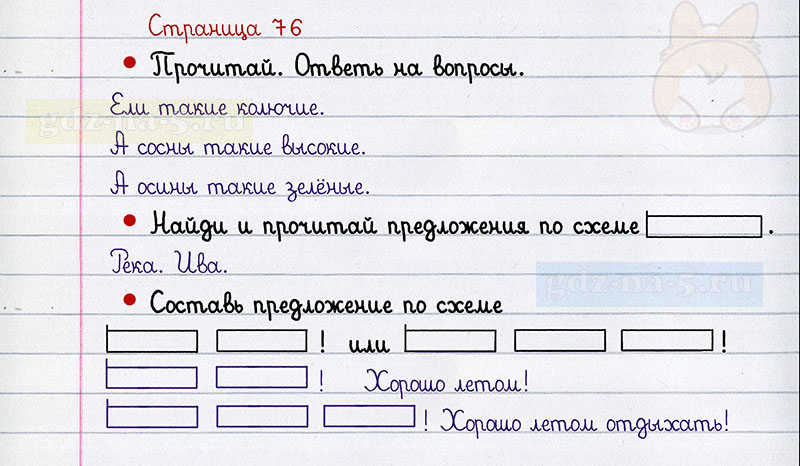 Страница 76
• Прочитай. Ответь на вопросы.
Ели такие колючие.
gdz-na-5.ru
А сосны такие высокие.
А осины такие зелёные.
• Найди и прочитай предложения по схеме .
Река. Ива.
gdz-na-5.ru
• Составь предложение по схеме
! или !
! Хорошо летом!
! Хорошо летом отдыхать!